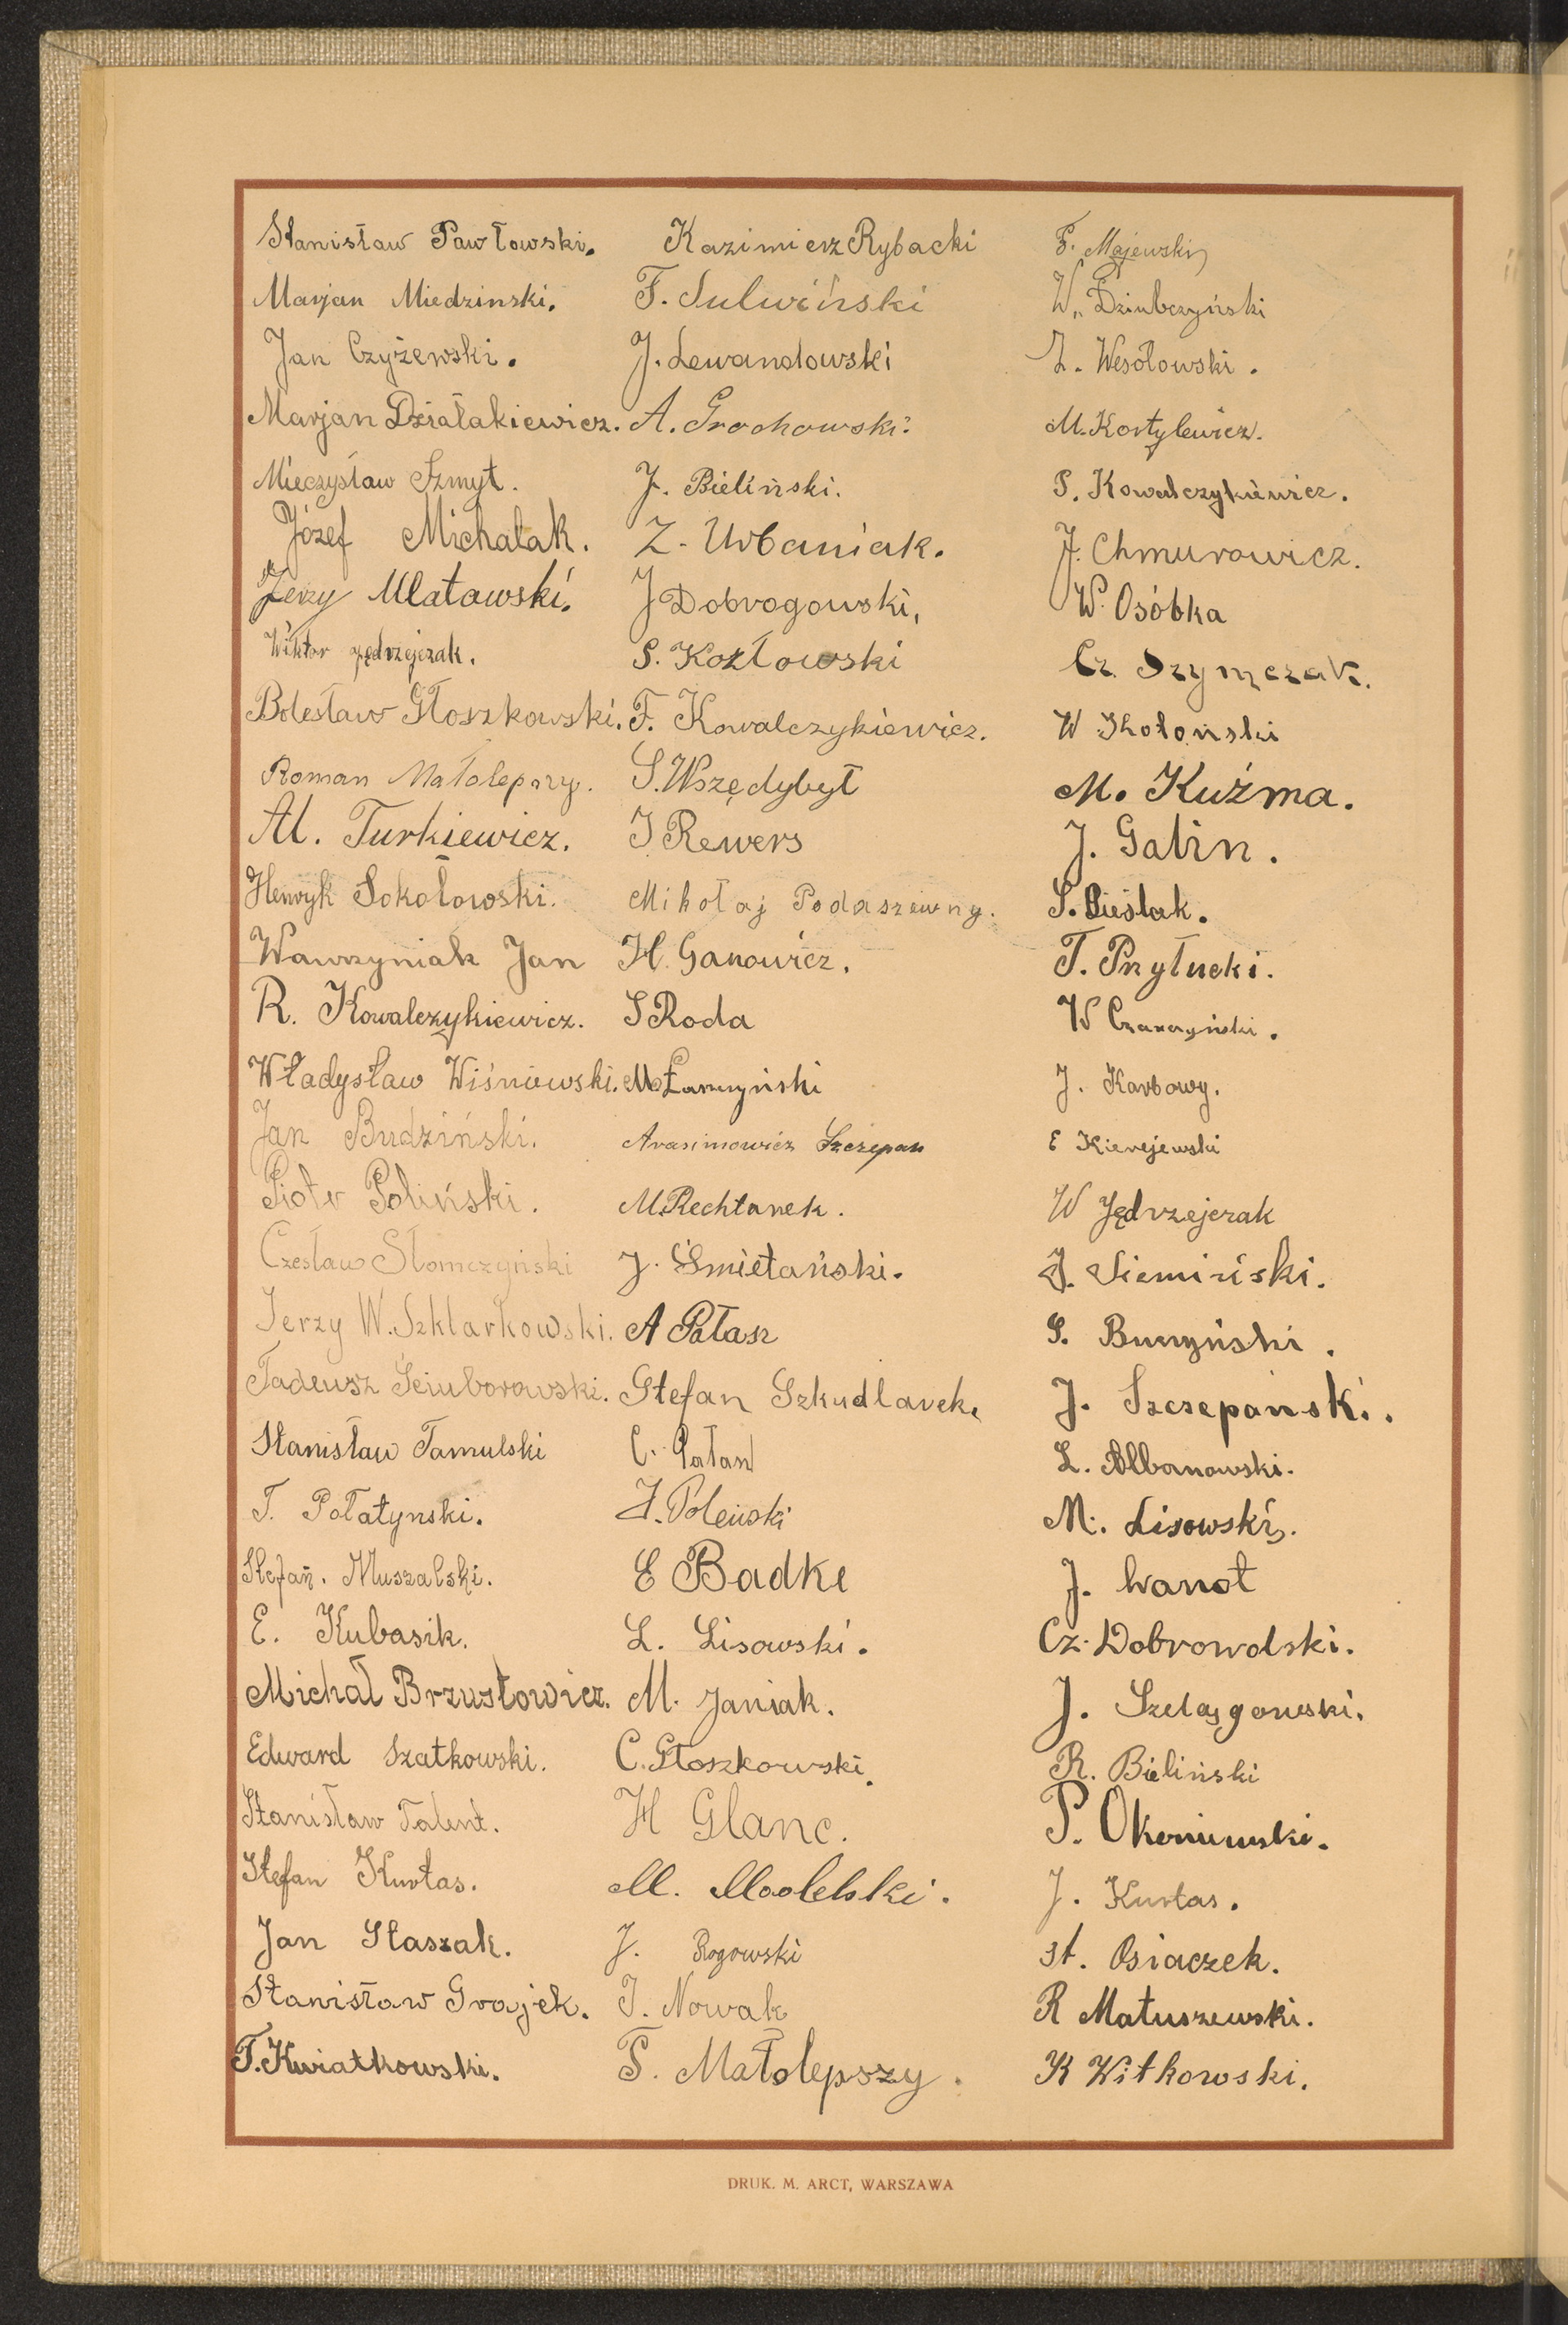 Stanisław Pawłowski.
Marjan Miedzinski.
Jan Czyżewski.
Marjan Działakiewicz.
Mieczysław Szmyt.
Józef Michalak.
Jerzy Mlatawski.
Wiktor Jędrzejczak.
Bolesław Głoszkowski.
Roman Małolepszy.
Al. Turkiewicz.
Henryk Sokołowski.
Wawrzyniak Jan
R. Kowalczykiewicz.
Władysław Wiśniewski.
Jan Budziński.
Piotr Poliński.
Czesław Słomczyński
Jerzy W. Szklarkowski.
Tadeusz Ściuborowski.
Stanisław Tamulski
T. Połatynski.
Stefan. Muszalski.
E. Kubasik.
Michał Brzustowicz.
Edward Szatkowski.
Stanisław Talent.
Stefan Kurtas.
Jan Staszak.
Stanisław Grajek.
T. Kwiatkowski.
Kazimierz Rybacki
F. Sulwiński
J. Lewandowski
A. Grochowski.
J. Bieliński.
Z. Urbaniak.
J Dobrogowski,
S. Kozłowski
F. Kowalczykiewicz.
S. Wszędybył
J Rewers
Mikołaj Podaszewny.
H. Ganowicz.
S Roda
M.
Arasimowicz Szczepan
M. Rechtanek.
J. Śmietański.
A Pałasz
Stefan Szkudlarek.
C.
Polewski
E Badke
L. Lisowski.
M. Janiak.
C. Głoszkowski.
H Glanc.
M. Modelski.
J. Rogowski
J. Nowak
F. Małolepszy.
F. Majewski
W. Dziubczyński
Z. Wesołowski.
M. Kortylewicz.
S. Kowalczykiewicz.
J. Chmurowicz.
W. Osóbka
Cz. Szymczak.
W
M. Kuźma.
J. Galin.
S. Cieślak.
T. Przyłucki.
W
J. Karbowy.
E Kierejewski
W Jędrzejczak
J. Siemiński.
S. Buczyński.
J. Szczepański.
L. Albanowski.
M. Lisowski.
J. Wanot
Cz. Dobrowolski.
J. Szelągowski.
R. Bieliński
P. Okoniewski.
J. Kurtas.
St. Osiaczek.
R Matuszewski.
K Witkowski.
DRUK. M. ARCT, WARSZAWA